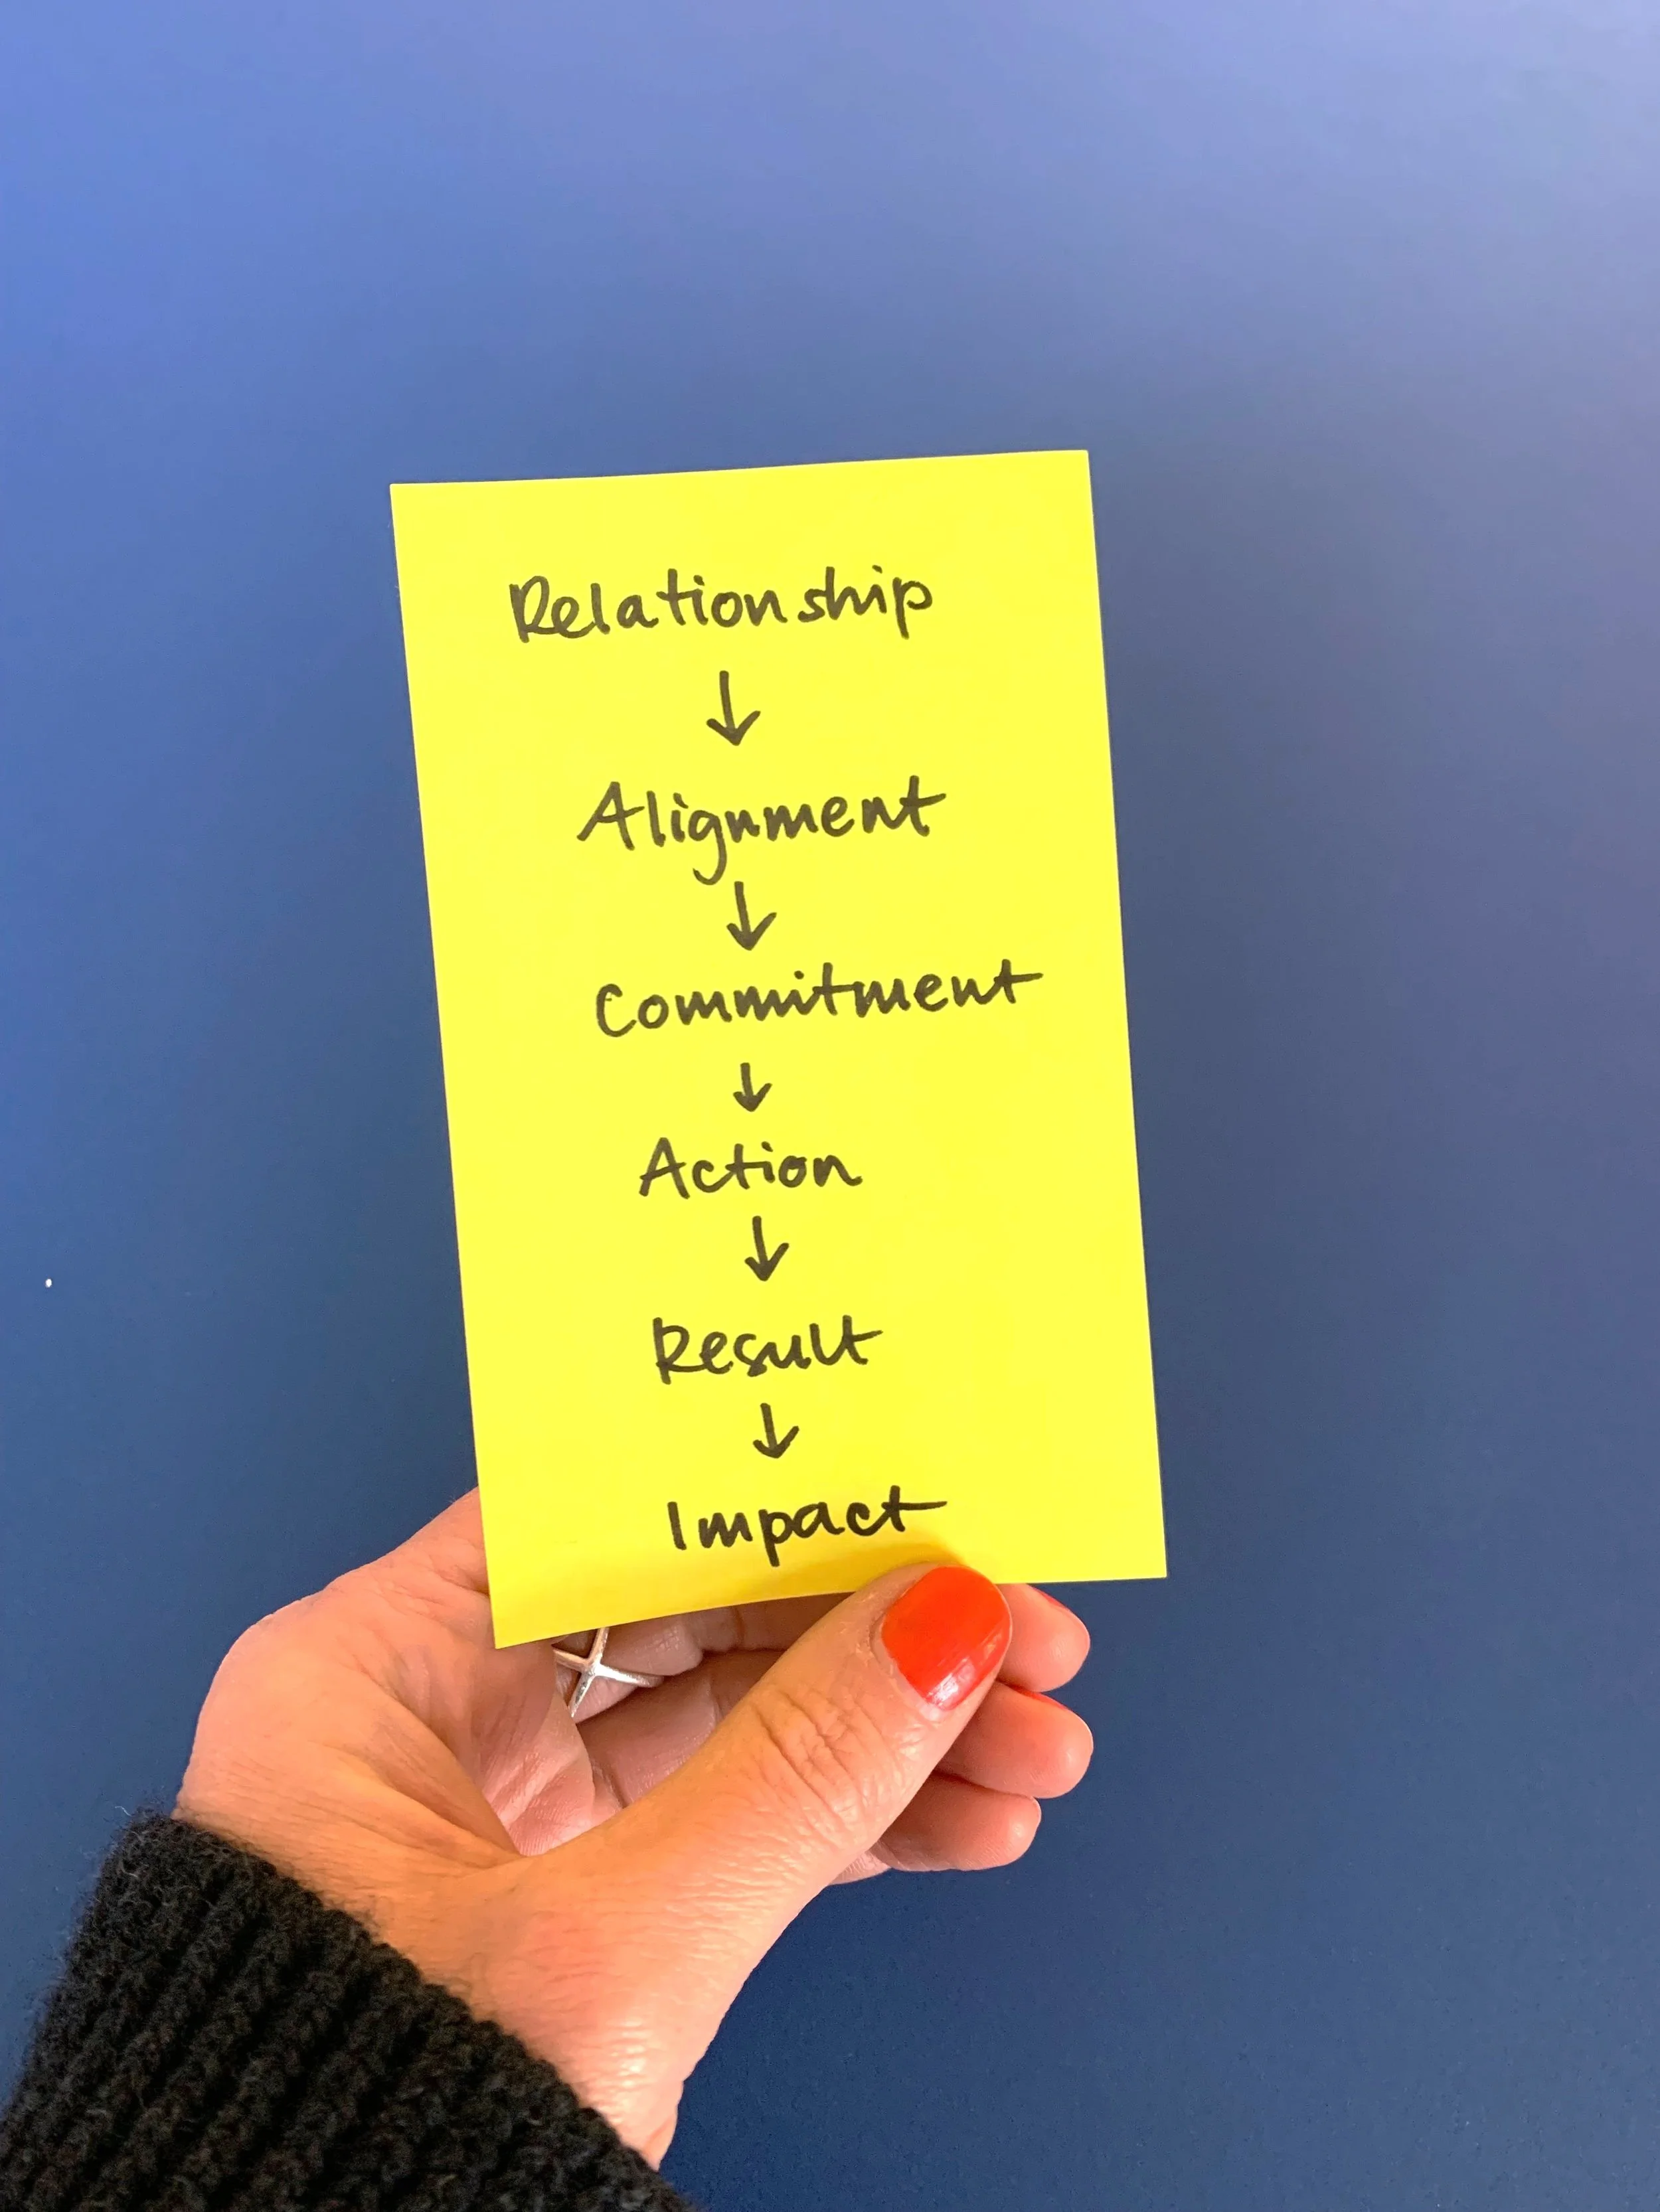 Relationship
↓
Alignment
↓
Commitment
↓
Action
↓
Result
↓
Impact